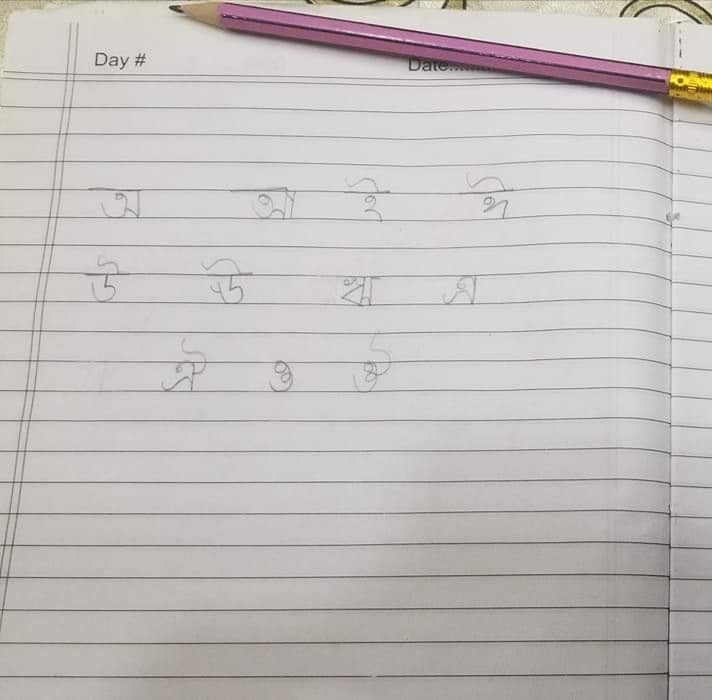 Day #
Date........
অ আ ই ঈ
উ ঊ ঋ এ
ঐ ও ঔ